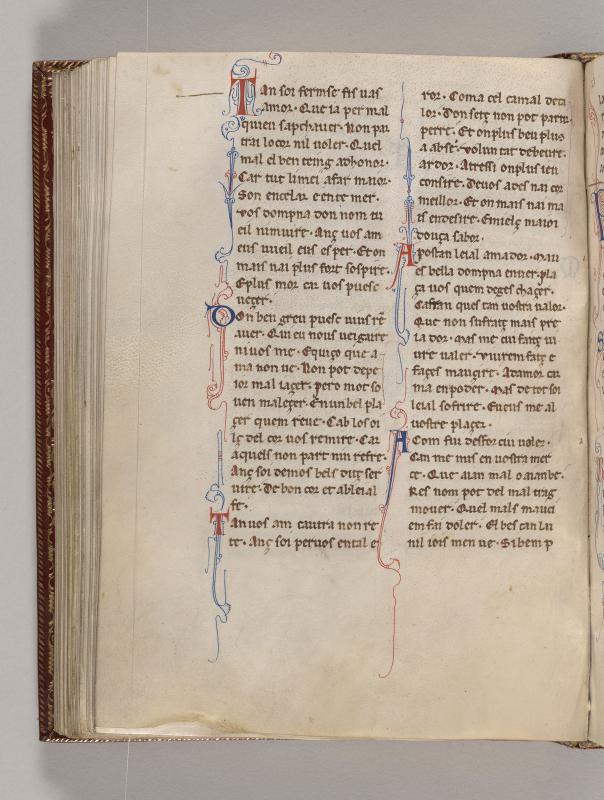 Tan soi fermse fis uas
amor. Que ia per mal
quieu sapch auer. Non par
trai lo cor nil uoler. Quel
mal el ben teing ad honor.
Car tut lamei afar maior.
Son encelar e ente mer.
uos dompna don nom tu
eil nim uire. Anç uos am
eus uueil eus esper. Et on
mais nai plus fort sospire.
Eplus mor car uos puesc
ueçer.
Don ben greu puesc uius re
auer. Quieu nous ueigaire
ni uos me. Equiço que a
ma non ue. Non pot depe
ior mal iaçer. Pero mot so
uen maleçer. En un bel pla
çer quem reue. Cab los oi
lç del cor uos remire. Car
aquels non part nin refre.
Anç soi demos bels ditç ser
uire. De bon cor et ableial
fe.
Tan uos am cautra non re
te. Anç soi per uos ental e
ror. Coma cel camal deca
lor. Don setç non pot partir
perre. Et on plus beu plus
a abste. Voluntat de beure.
ardor. Atressi on plus ieu
consire. Deuos ades nai cor
meillor. Et on mais nai ma
is endesire. Emielç maior
douça sabor.
Apostan leial amador. Mau
es bella dompna enuer pla
ça uos quem deges chaçer.
Cafran ques tan uostra ualor.
Que non sufratç mais pre
ia dor. Mas me cui fatç ui
ure ualer. Viurem fatç e
façes maugire. Adamor cu
ma en poder. Mas de tot soi
leial sofrire. En eus me al
uostre plaçer.
Acom fui desfor cui uoler.
Can me mis en uostra mer
ce. Que aian mal o aianbe.
Res nom pot del mal trag
mouer. Quel mals maui
em fai doler. El bes can lu
nil iois men ue. Si ben p